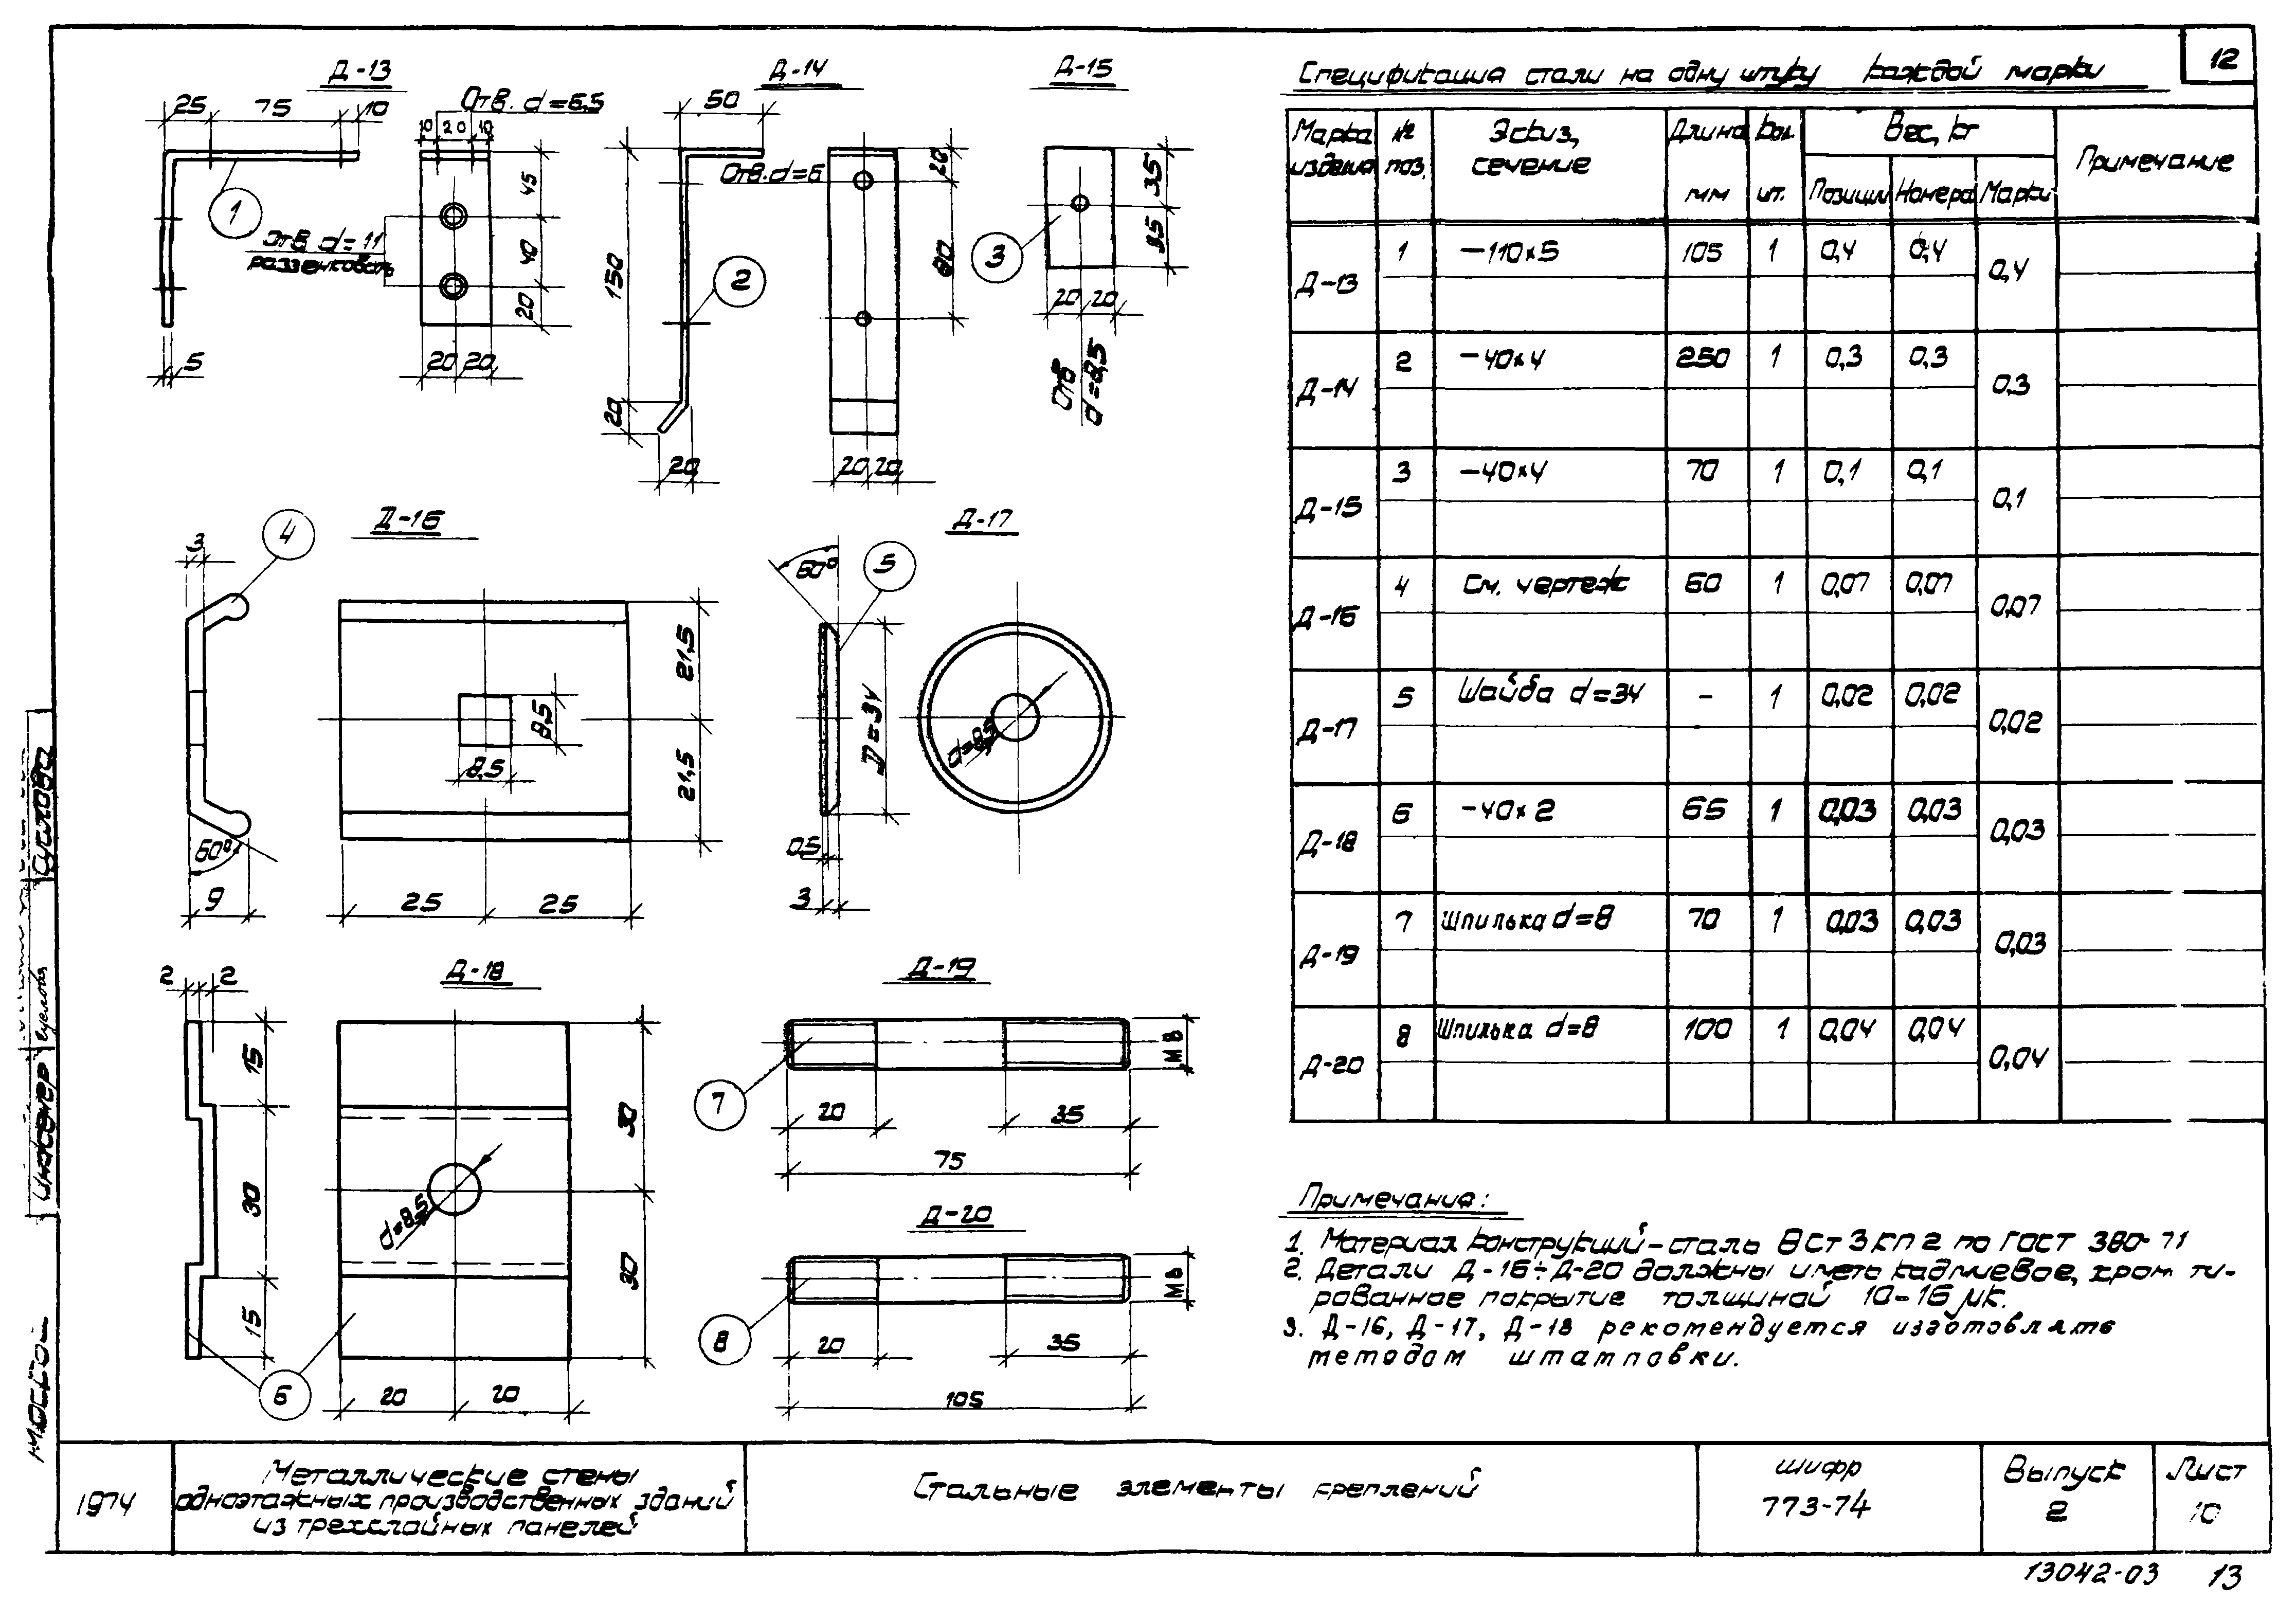 12
Д-13
25 75 10
Отв. d=6,5
10 20 10
45
40
20
1
Отв d=11
раззенковать
5
20 20
Д-14
50
Отв. d=6
150
20
20
2
20
80
20 20
Д-15
35
35
3
20 20
Отв
d=8,5
Д-16
4
3
21,5
21,5
8,5
8,5
60°
9
25 25
Д-17
60°
5
D=34
d=8,5
0,5
3
Д-18
2 2
15
30
15
30
30
d=8,5
6
20 20
Д-19
М8
7
20 35
75
Д-20
М8
8
20 35
105
Спецификация стали на одну штуку каждой марки
Марка изделия № поз. Эскиз, сечение Длина мм Кол. шт. Вес, кг Примечание
Позиции Номера Марки
Д-13 1 —110×5 105 1 0,4 0,4 0,4
Д-14 2 —40×4 250 1 0,3 0,3 0,3
Д-15 3 —40×4 70 1 0,1 0,1 0,1
Д-16 4 См. чертеж 60 1 0,07 0,07 0,07
Д-17 5 Шайба d=34 - 1 0,02 0,02 0,02
Д-18 6 —40×2 65 1 0,03 0,03 0,03
Д-19 7 Шпилька d=8 70 1 0,03 0,03 0,03
Д-20 8 Шпилька d=8 100 1 0,04 0,04 0,04
Примечания:
1. Материал конструкций-сталь ВСт3кп2 по ГОСТ 380-71
2. Детали Д-16÷Д-20 должны иметь кадмиевое, хромати-
рованное покрытие толщиной 10-16 мк.
3. Д-16, Д-17, Д-18 рекомендуется изготовлять
методом штамповки.
1974
Металлические стены
одноэтажных производственных зданий
из трехслойных панелей
Стальные элементы креплений
шифр
773-74
Выпуск
2
Лист
10
13042-03 13
инженер Суслова